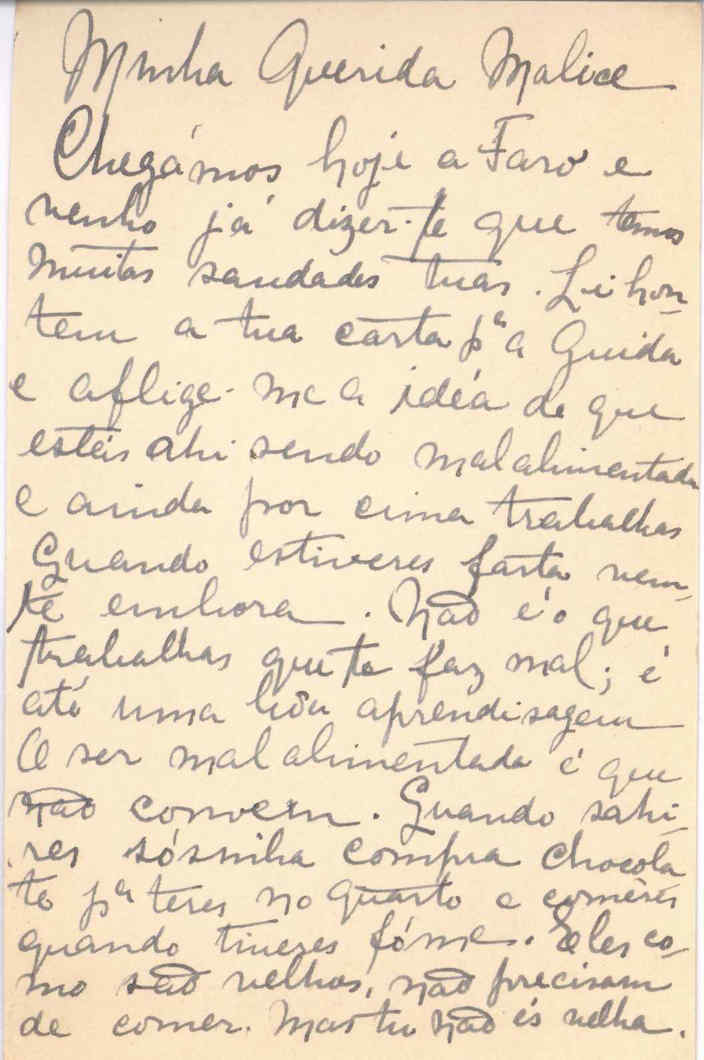 Minha Querida Malice
Chegámos hoje a Faro e
venho já dizer-te que temos
muitas saudades tuas. Li hon-
tem a tua carta pª a Guida
e aflige-me a idéa de que
estéis ahi sendo mal alimentada
e ainda por cima trabalhas
Quando estiveres farta vem-
te embora. Não é o que
trabalhas que te faz mal; é
até uma bôa aprendisagem
O ser mal alimentada é que
não convem. Quando sahi-
res sósinha compra chocola
te pª teres no quarto e comêres
quando tiveres fóme. Eles co-
mo são velhos, não precisam
de comer. Mas tu não és velha.